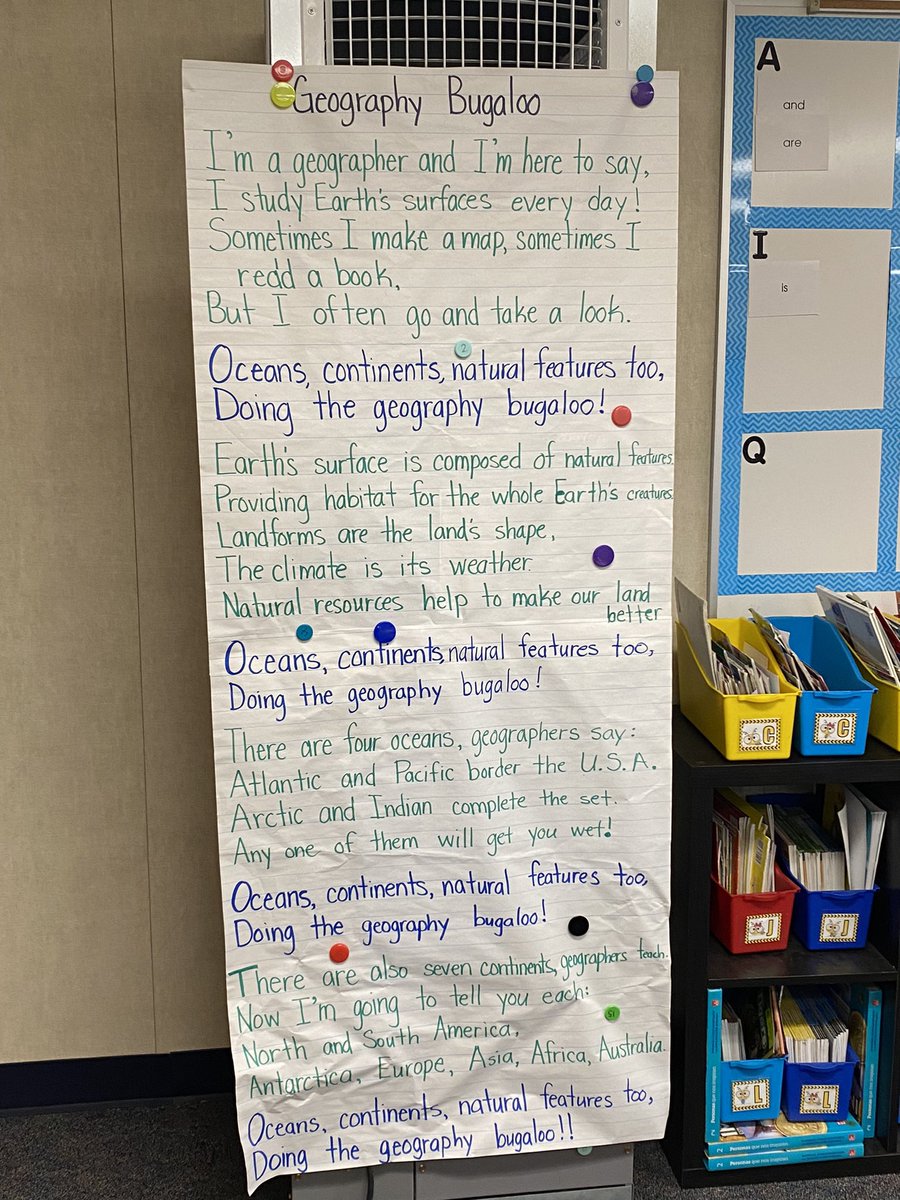 Geography Bugaloo
I'm a geographer and I'm here to say,
I study Earth's surfaces every day!
Sometimes I make a map, sometimes I
read a book,
But I often go and take a look.
Oceans, continents, natural features too,
Doing the geography bugaloo!
Earth's surface is composed of natural features.
Providing habitat for the whole Earth's creatures.
Landforms are the land's shape,
The climate is its weather.
Natural resources help to make our land
better
Oceans, continents, natural features too,
Doing the geography bugaloo!
There are four oceans, geographers say:
Atlantic and Pacific border the U.S.A.
Arctic and Indian complete the set.
Any one of them will get you wet!
Oceans, continents, natural features too,
Doing the geography bugaloo!
There are also seven continents, geographers teach.
Now I'm going to tell you each:
North and South America,
Antarctica, Europe, Asia, Africa, Australia.
Oceans, continents, natural features too,
Doing the geography bugaloo!!
A
and
are
I
is
Q
C
C
J
J
L
L
2
15
Personas que nos inspiran
Personas que nos inspiran